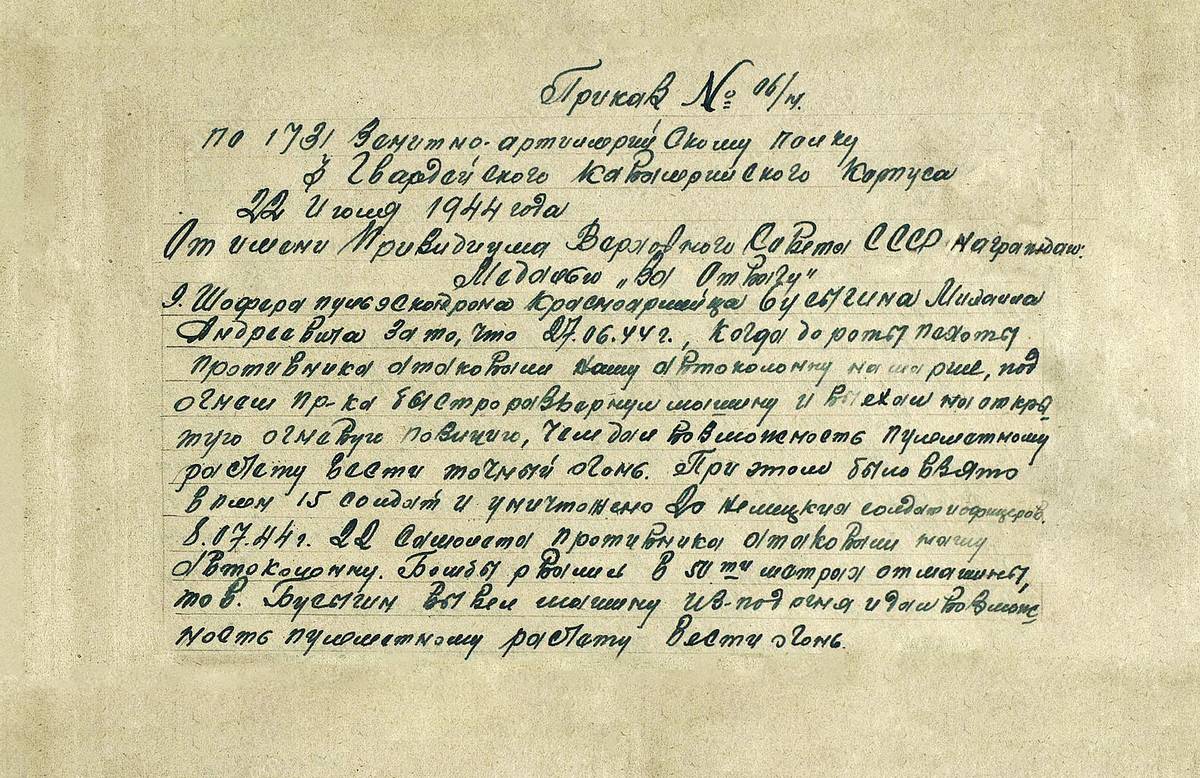 Приказ № 06/н.
по 1731 Зенитно-артиллерийскому полку
3 Гвардейского Кавалерийского Корпуса
22 Июля 1944 года
От имени Призидиума Верховного Совета СССР награждаю:
Медалью „За Отвагу"
9. Шофера пульэскадрона Красноармейца Бусыгина Михаила
Андреевича За то, что 27.06.44г., когда до роты пехоты
противника атаковали нашу автоколонну на марше, под
огнем пр-ка быстро развернул машину и выехал на откры-
тую огневую позицию, чем дал возможность пулеметному
расчету вести точный огонь. При этом было взято
в плен 15 солдат и уничтожено до немецких солдат и офицеров.
8.07.44г. 22 самолета противника атаковали нашу
автоколонну. Бомбы рвались в 50ти метрах от машины,
тов. Бусыгин вывел машину из-под огня и дал возмож-
ность пулеметному расчету вести огонь.